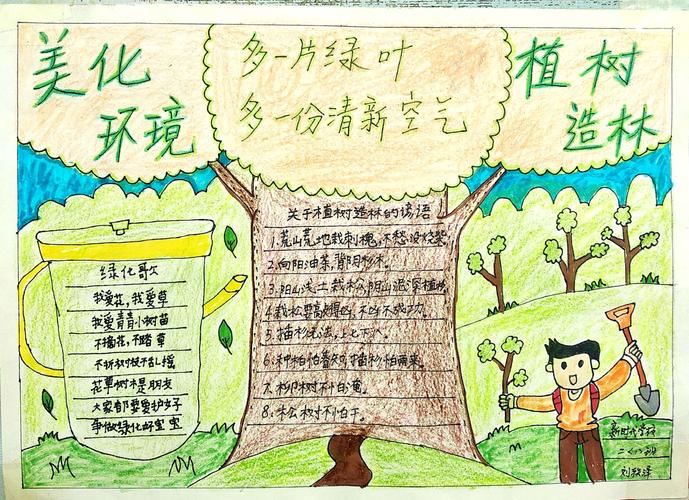 美化
环境
多一片绿叶
多一份清新空气
植树
造林
绿化歌
我爱花,我爱草
我爱青青小树苗
不摘花,不踏草
不折树枝不乱摇
花草树木是朋友
大家都要爱护
争做绿化好宝宝
关于植树造林的谚语
1.荒山荒地栽刺槐,不愁没烧柴。
2.向阳油茶,背阴杉木。
3.阳山浅土栽松,阴山泥深植杉。
4.栽松要高燥,不成功。
5.插杉无法,上七下八。
6.种柏怕春知,插杉怕雨来。
7.柳树不怕淹。
8.松树不怕干。
新时代学校
二(八)班